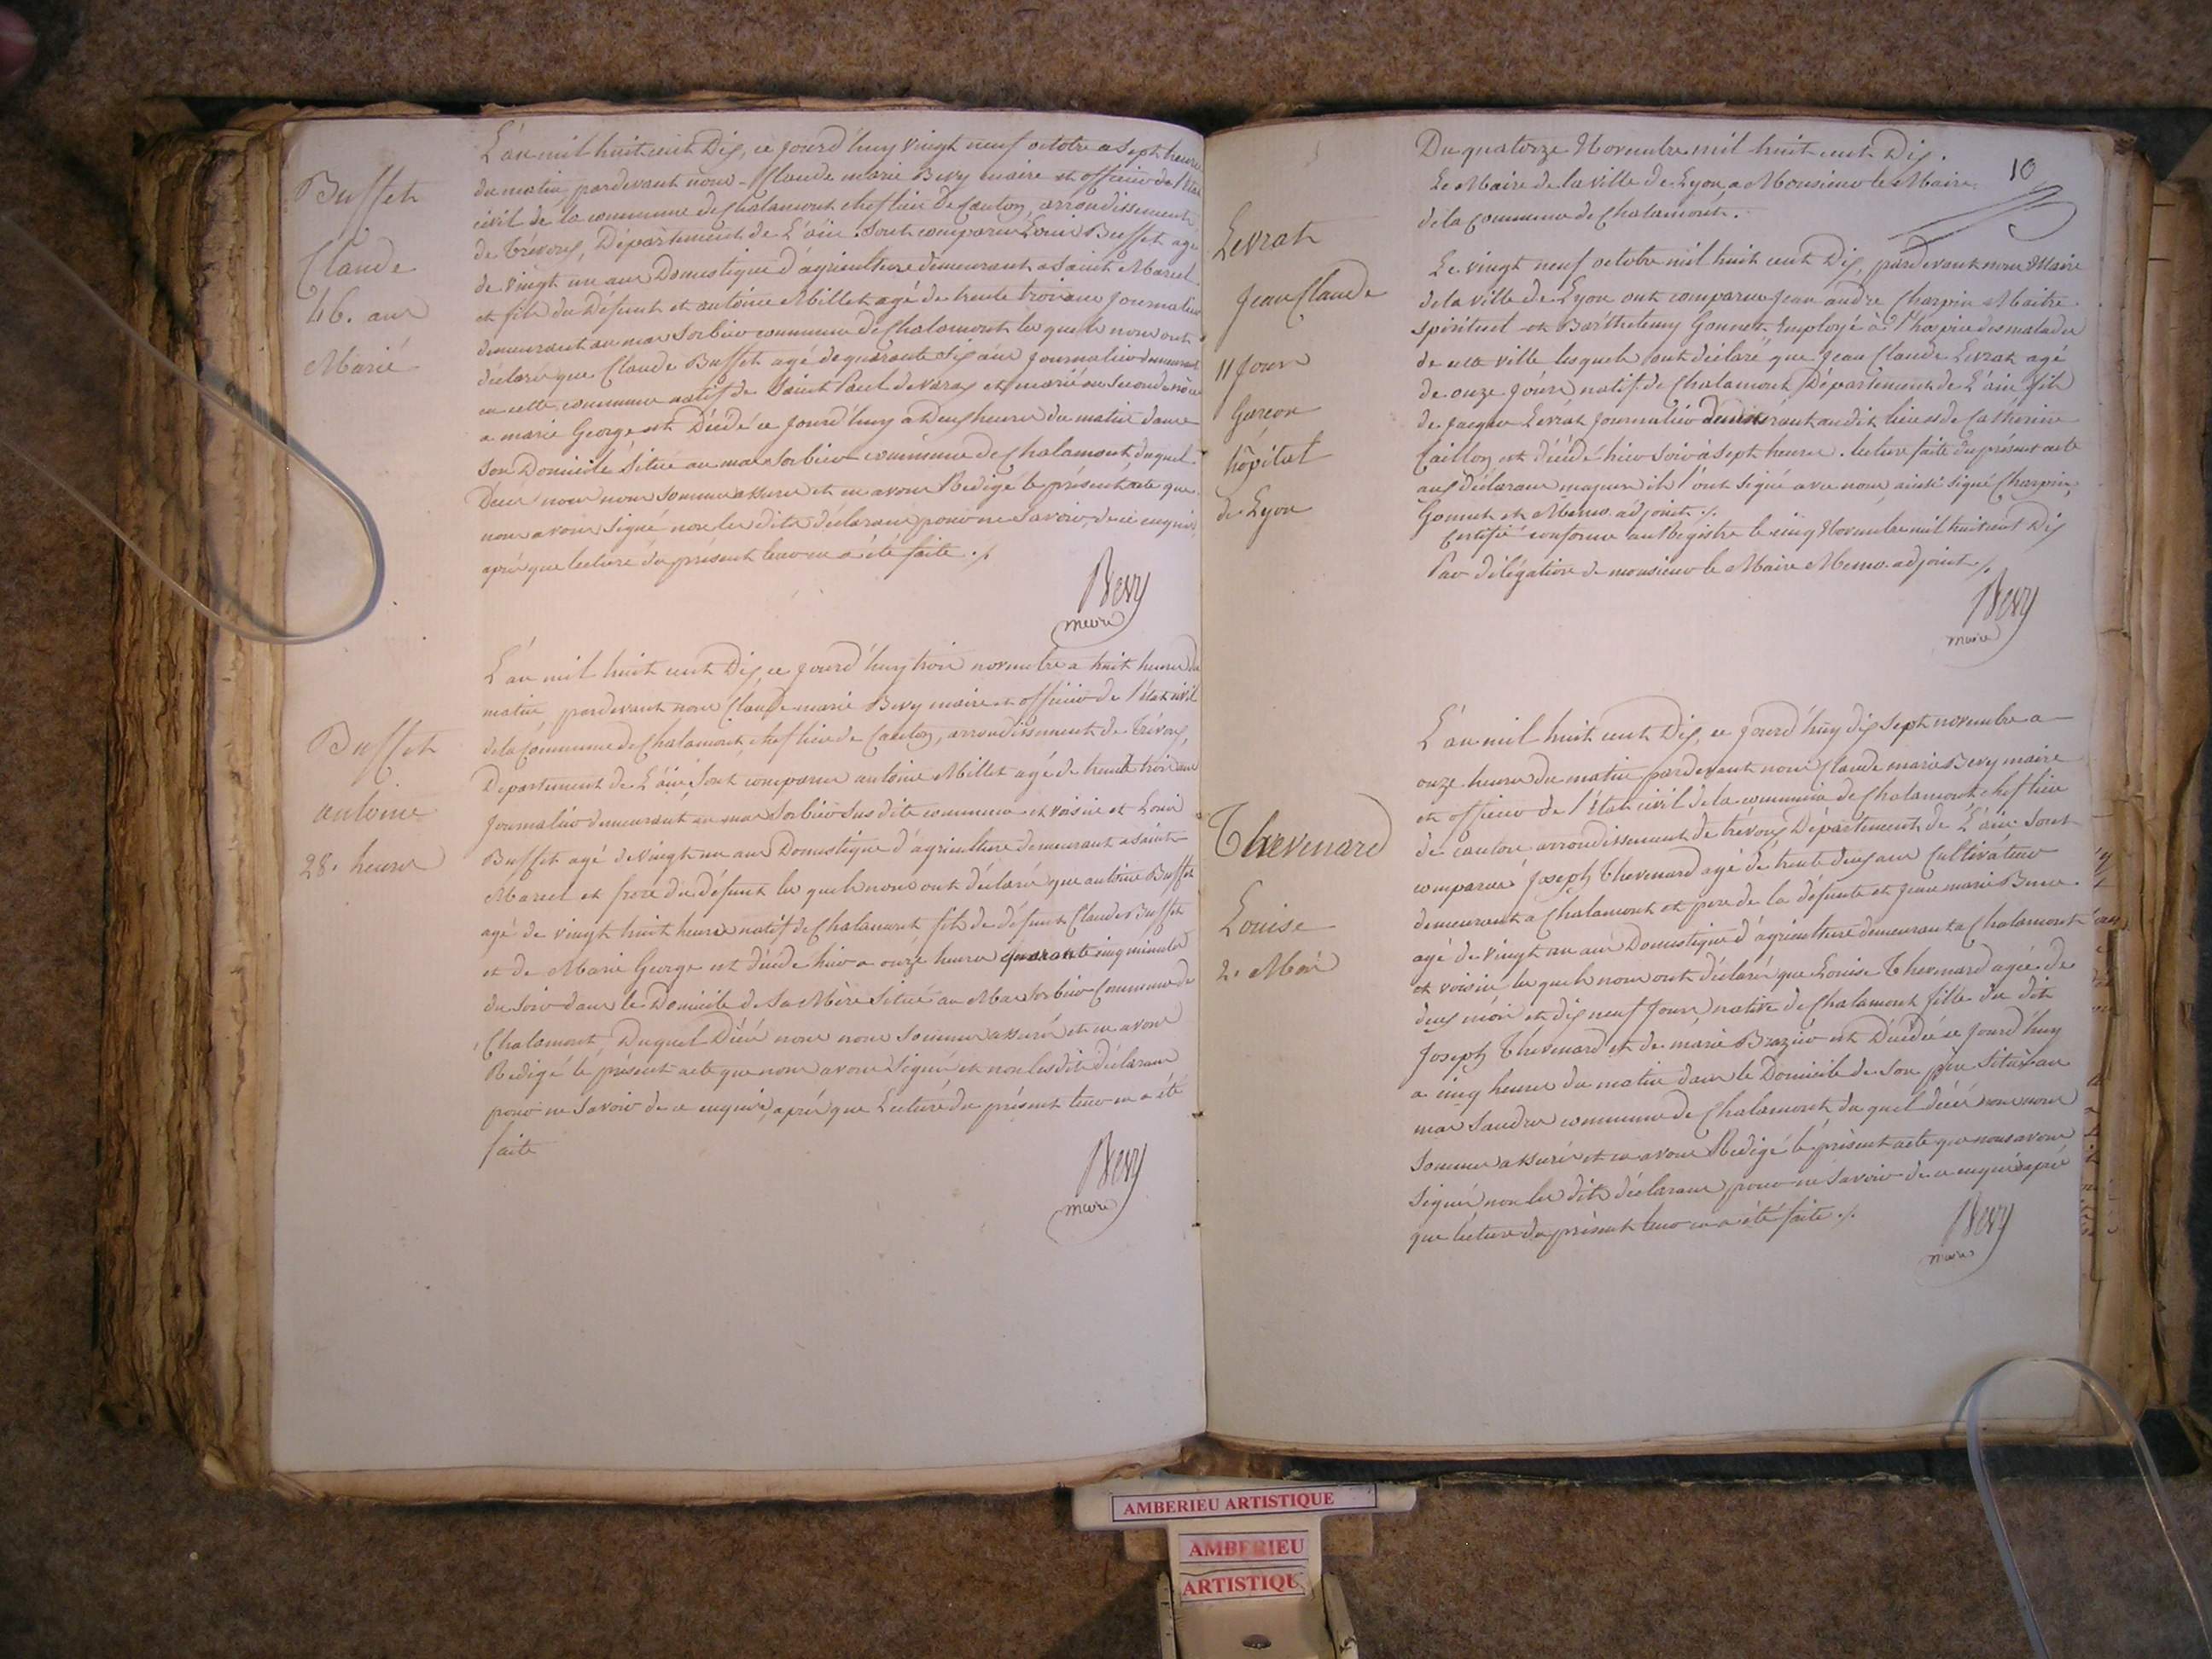 Buffet
Claude
46. ans
Marié
L'an mil huit cent Dix, ce jourd'huy vingt neuf octobre a sept heures
du matin, pardevant nous Claude marie Bevy maire et officier de l'état
civil de la commune de Chalamont chef lieu de Canton, arrondissement
de Trévoux, Département de L'ain. Sont comparus Louis Buffet agé
de vingt un ans Domestique d'agriculture demeurant a Saint Marcel
et fils du Défunt et antoine Millet agé de trente trois ans Journalier
demeurant au mas Sorbier commune de Chalamont les quels nous ont
déclaré que Claude Buffet agé de quarante Six ans Journalier demeurant
en cette commune natif de Saint Paul de varax et marié en seconde noce
a marie George est Décédé ce jourd'huy a Deux heures du matin dans
son Domicile Situé au mas Sorbier commune de Chalamont duquel
Décès nous nous sommes assurés et en avons Redigé le présent acte que
nous avons Signé non les dits déclarans pour ne savoir, de ce enquis,
après que lecture du présent leur en a été faite ./.
Bevy
maire
Buffet
antoine
28. heures
L'an mil huit cent Dix, ce jourd'huy trois novembre a huit heures du
matin, pardevant nous Claude marie Bevy maire et officier de l'état civil
de la Commune de Chalamont, chef lieu de Canton, arrondissement de Trévoux,
Departement de L'ain, Sont comparus antoine Millet agé de trente trois ans
Journalier demeurant au mas Sorbier Sus dite commune et voisin et Louis
Buffet agé de vingt un ans Domestique d'agriculture demeurant a Saint
Marcel et frere du défunt les quels nous ont déclaré que antoine Buffet
agé de vingt huit heures natif de Chalamont fils de défunt Claude Buffet
et de Marie George est décédé hier a onze heures quarante cinq minutes
du soir dans le Domicile de Sa Mère Situé au Mas Sorbier Commune de
Chalamont, Duquel Décès nous nous sommes assurés et en avons
Redigé le présent acte que nous avons Signé et non les dits déclarans
pour ne Savoir de ce enquis, après que Lecture du présent leur en a été
faite
Bevy
maire
10
Du quatorze Novembre mil huit cent Dix.
Le Maire de la Ville de Lyon a Monsieur le Maire
de la Commune de Chalamont.
Levrat
Jean Claude
11 Jours
Garçon
hôpital
de Lyon
Le vingt neuf octobre mil huit cent Dix, pardevant nous Maire
de la ville de Lyon ont comparus Jean andré Charpin Maitre
spirituel et Barthelemy Gonnet Employé à l'hospice des malades
de cette ville lesquels ont déclaré que Jean Claude Levrat agé
de onze Jours natif de Chalamont Département de L'ain fils
de Jacques Levrat Journalier demeurant audit lieu et de Catherine
Caillon est décédé hier soir à sept heures. lecture faite du présent acte
aux déclarans majeurs ils l'ont signé avec nous ainsi signé Charpin,
Gonnet et adjoint ./.
Certifié conforme au Régistre le cinq Novembre mil huit cent Dix
Par délégation de monsieur le Maire adjoint ./.
Bevy
maire
Thevenard
Louise
2. Mois
L'an mil huit cent Dix, ce jourd'huy dix sept novembre a
onze heures du matin pardevant nous Claude marie Bevy maire
et officier de l'état civil de la commune de Chalamont chef lieu
de canton arrondissement de trévoux Département de L'ain. Sont
comparus Joseph Thevenard agé de trente deux ans Cultivateur
demeurant a Chalamont et pere de la défunte et Jean marie
agé de vingt un ans Domestique d'agriculture demeurant a Chalamont
et voisin les quels nous ont déclaré que Louise Thevenard agée de
deux mois et dix neuf Jours native de Chalamont fille du dit
Joseph Thevenard et de marie Brazier est Décédée ce jourd'huy
a cinq heures du matin dans le Domicile de Son père Situé au
mas commune de Chalamont du quel décès nous nous
sommes assurés et en avons Redigé le présent acte que nous avons
Signé non les dits déclarans pour ne savoir de ce enquis après
que lecture du présent leur en a été faite ./.
Bevy
maire
AMBERIEU ARTISTIQUE
AMBERIEU
ARTISTIQUE